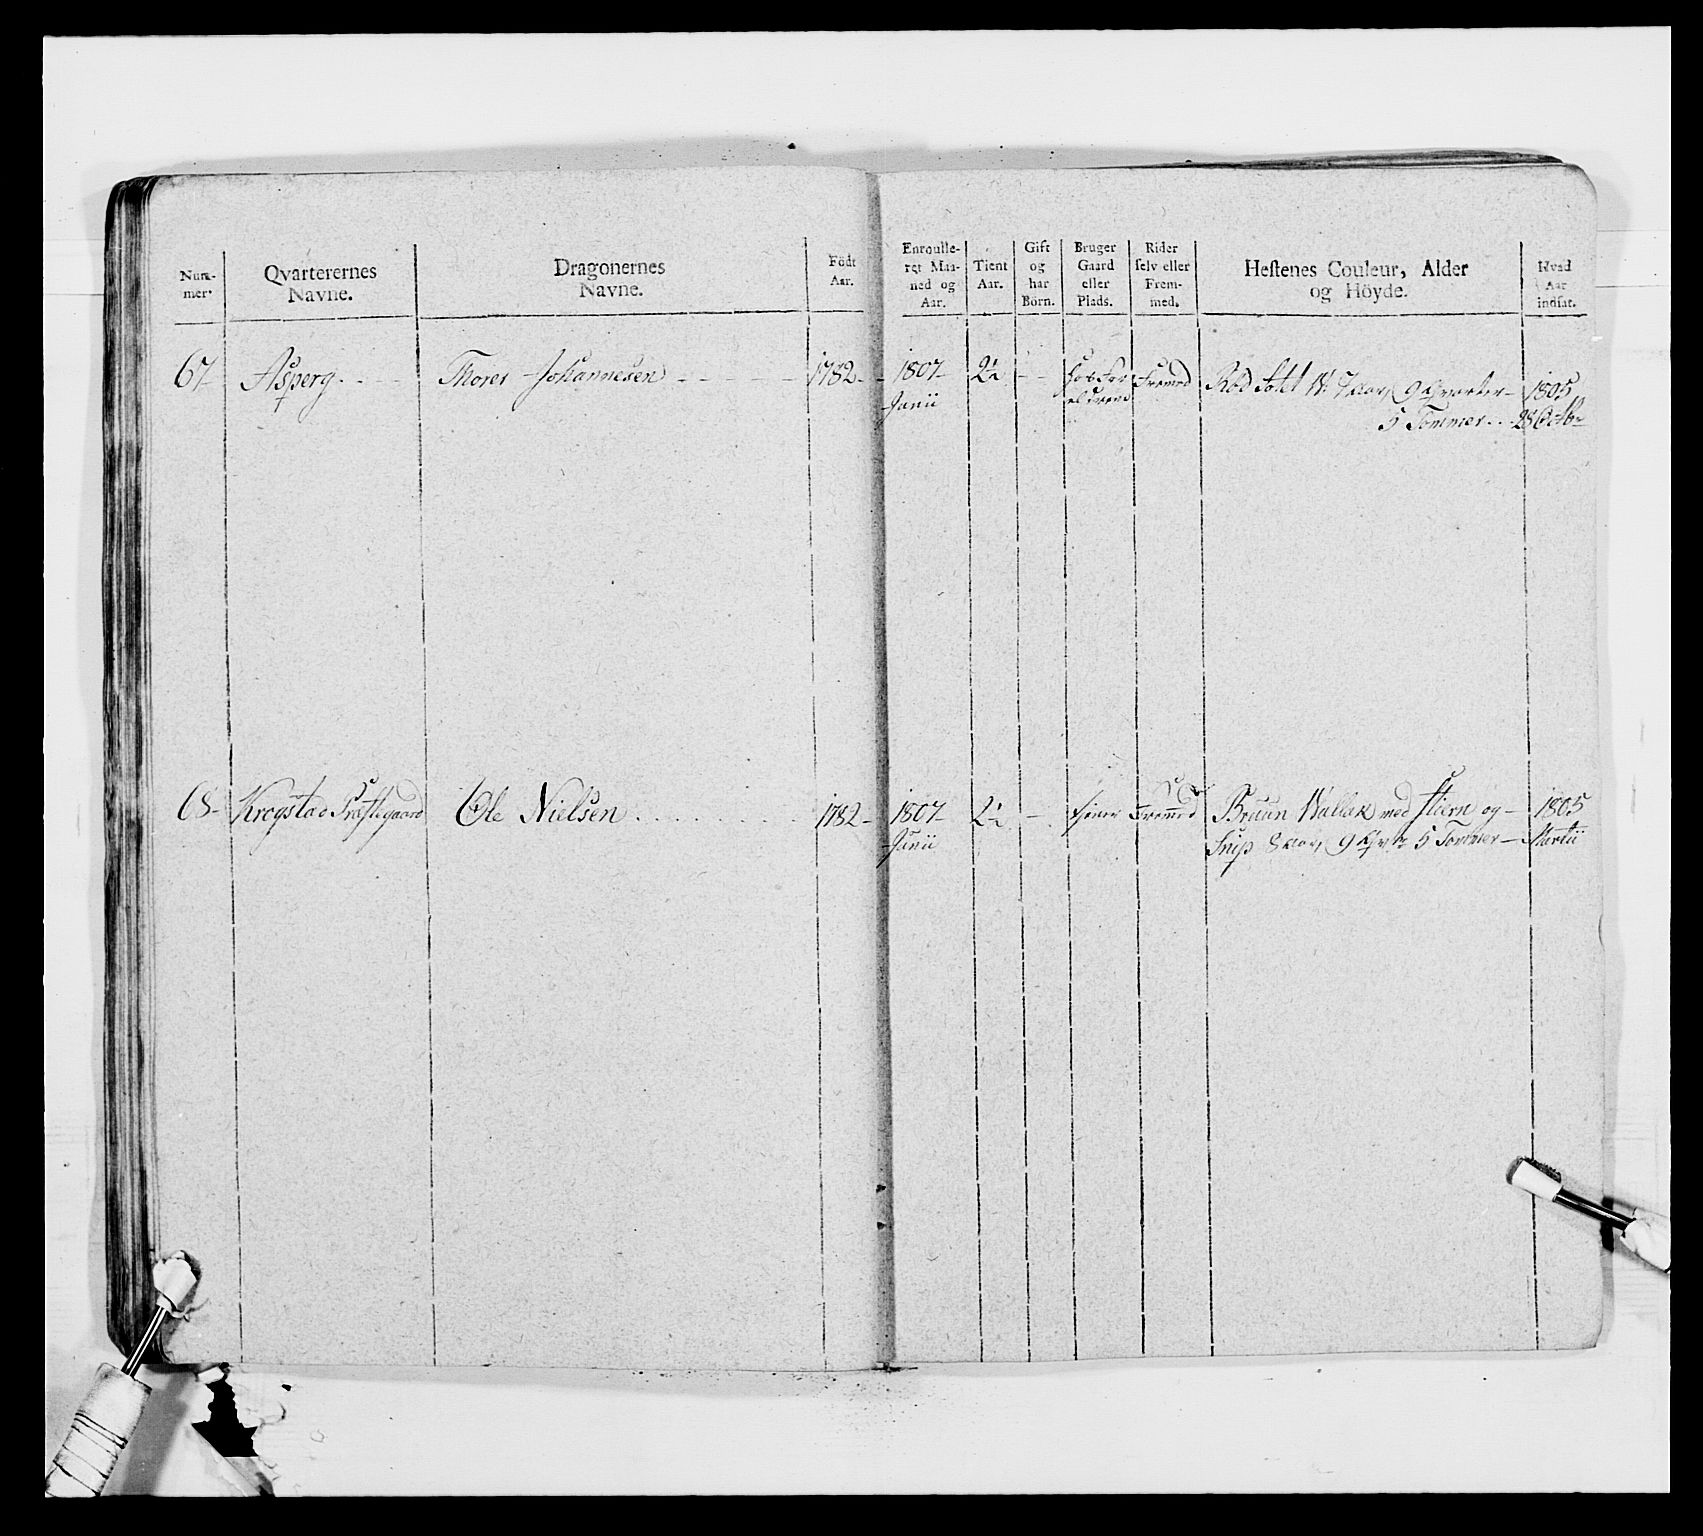 Num-
mer.
Qvarterernes
Navne.
Dragonernes
Navne.
Födt
Aar.
Enroulle-
ret Maa-
ned og
Aar.
Tient
Aar.
Gift
og
har
Börn.
Bruger
Gaard
eller
Plads.
Rider
selv eller
Frem-
med.
Hestenes Couleur, Alder
og Höyde.
Hvad
Aar
indsat.
67 Asperg Thores Johannesen 1782 1807 2½ - - hos For Fremed Röd 7 Aar, 9 Qvarter 1805
Junii ældrene 5 Tommer 28 Octbr
68 Krogstad Præstegaard Ole Nielsen 1782 1807 2½ - tjener Fremed Bruun Wallak med Stiern og 1805
Junii Snip 8 Aar, 9 Qvtr 5 Tommer Martii